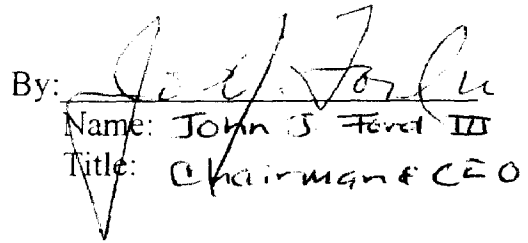 By:
Name: John J Ford III
Title: Chairman & CEO